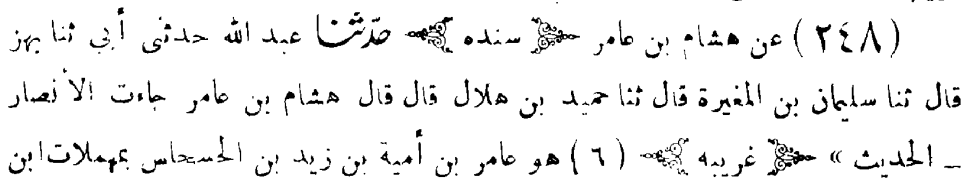 (٢٤٨) عن هشام بن عامر ﴿ سنده ﴾ حدثنا عبد الله حدثنى أبي ثنا بهز
قال ثنا سليمان بن المغيرة قال ثنا حميد بن هلال قال قال هشام بن عامر جاءت الأنصار
_ الحديث » ﴿ غريبه ﴾ (٦) هو عامر بن أمية بن زيد بن الحسحاس بمهملات ابن